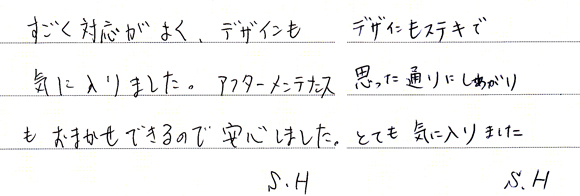 すごく対応がよく、デザインも
気に入りました。アフターメンテナンス
もおまかせできるので安心しました。
S.H
デザインもステキで
思った通りにしあがり
とても気に入りました
S.H